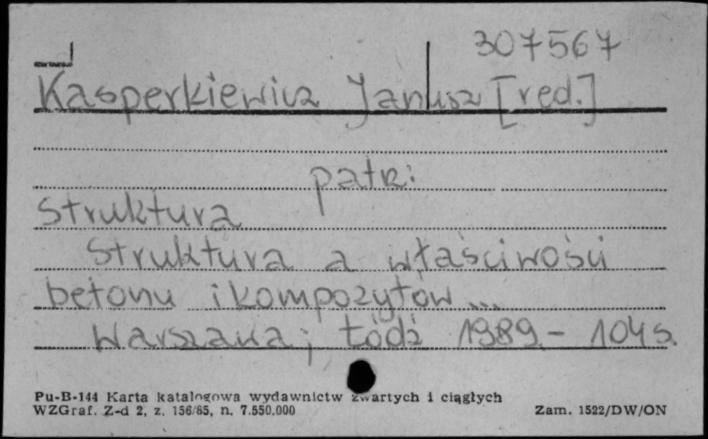 307567
Kasperkiewicz Janusz [red.]
patrz:
Struktura
Struktura a właściwości
betonu i kompozytów...
Warszawa; Łódź 1989 - 104 s.
Pu-B-144 Karta katalogowa wydawnictw zwartych i ciągłych
WZGraf. Z-d 2, z. 156/85, n. 7.550.000
Zam. 1522/DW/ON